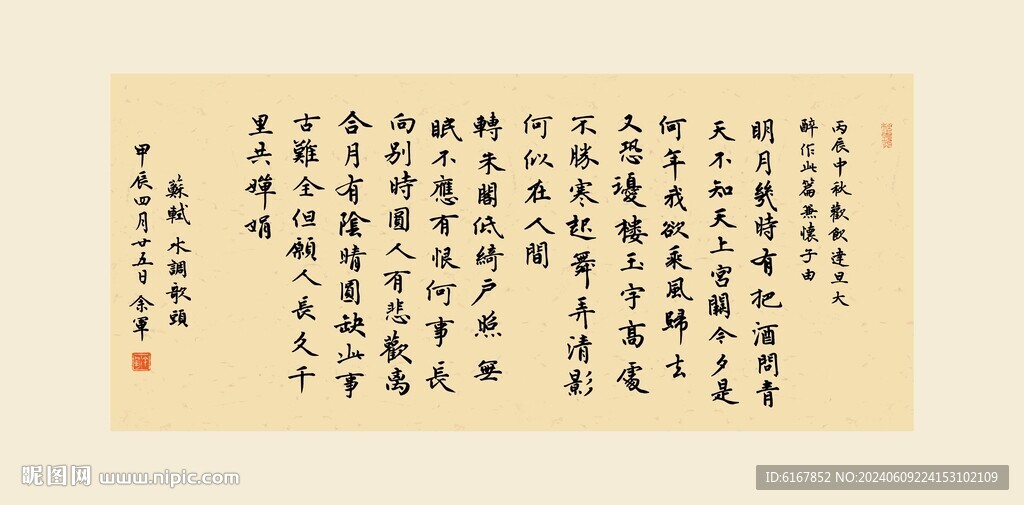 丙辰中秋歡飲達旦大
醉作此篇兼懷子由
明月幾時有把酒問青
天不知天上宮闕今夕是
何年我欲乘風歸去
又恐瓊樓玉宇高處
不勝寒起舞弄清影
何似在人間
轉朱閣低綺戶照無
眠不應有恨何事長
向别時圓人有悲歡离
合月有陰晴圓缺此事
古難全但願人長久千
里共嬋娟
蘇軾 水調歌頭
甲辰四月廿五日余軍
昵图网 www.nipic.com
ID:6167852 NO:20240609224153102109